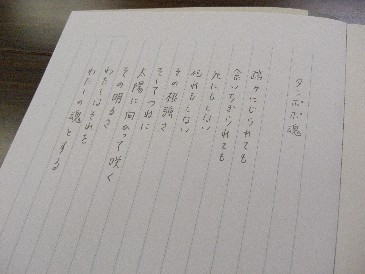 タンポポ魂
踏みにじられても
食いちぎられても
死にもしない
枯れもしない
その根強さ
そしてつねに
太陽に向かって咲く
その明るさ
わたしはそれを
わたしの魂とする